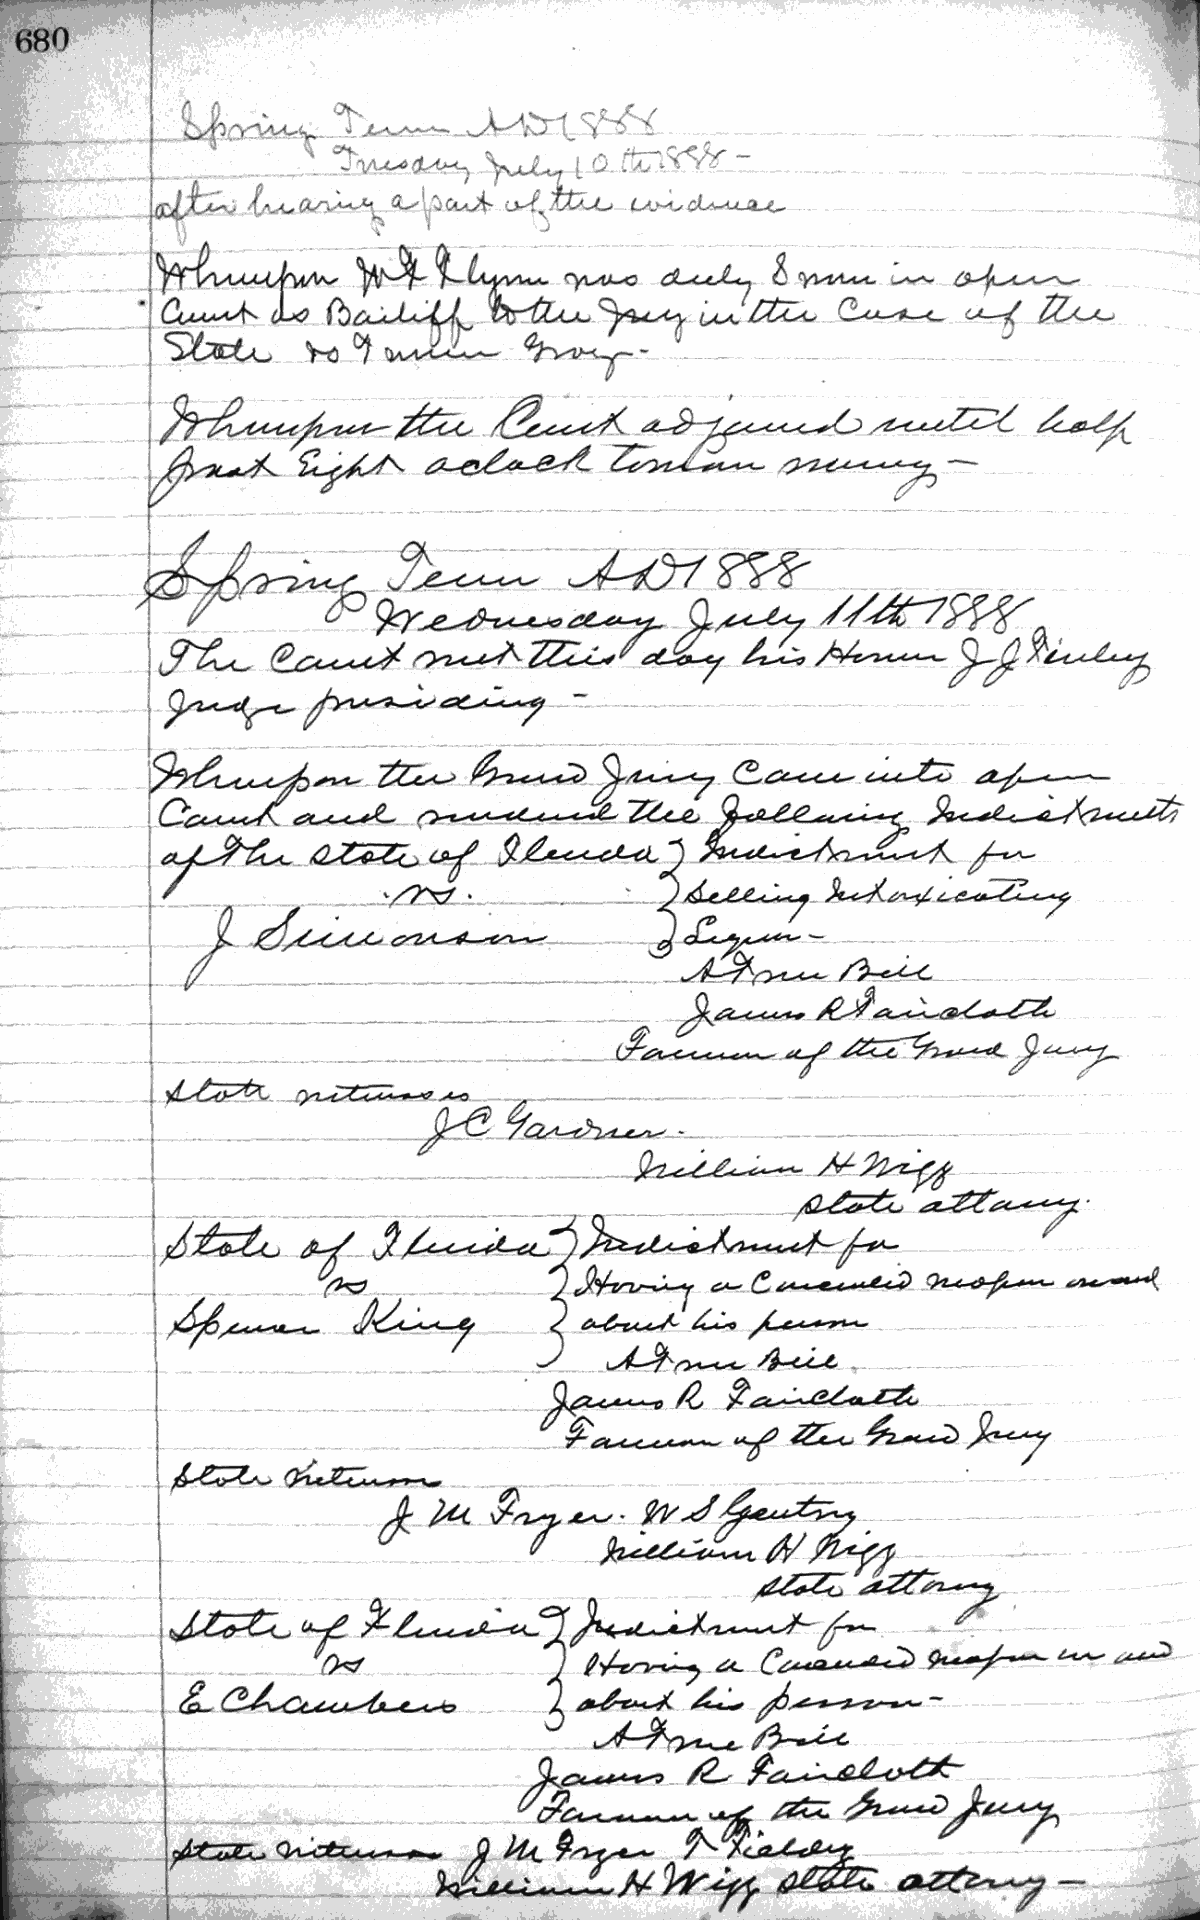 680
Spring Term AD 1888
Tuesday July 10th 1888 -
after hearing a part of the evidence
Whereupon W F Flynn was duly Sworn in open
Court as Bailiff to the Jury in the Case of the
State vs
Whereupon the Court adjourned until half
past Eight oclock tomorrow morning -
Spring Term AD 1888
Wednesday July 11th 1888
The Court met this day his Honor J J Finley
Judge presiding -
Whereupon the Grand Jury Came into open
Court and rendered the following Indictments
of The State of Florida } Indictment for
vs. } Selling Intoxicating
J Simonson } Liquor -
A True Bill
James R Faircloth
Foreman of the Grand Jury
State witnesses
J C Gardner.
William H Wigg
State attorney.
State of Florida } Indictment for
vs } Having a Concealed weapon on and
Spencer King } about his person
A True Bill.
James R Faircloth
Foreman of the Grand Jury
State Witnesses
J M Fryer. W S Gentry
William H Wigg
State attorney
State of Florida } Indictment for
vs } Having a Concealed weapon on and
E Chambers } about his person -
A True Bill
James R Faircloth
Foreman of the Grand Jury
State Witnesses J M Fryer T Fielding
William H Wigg State attorney -